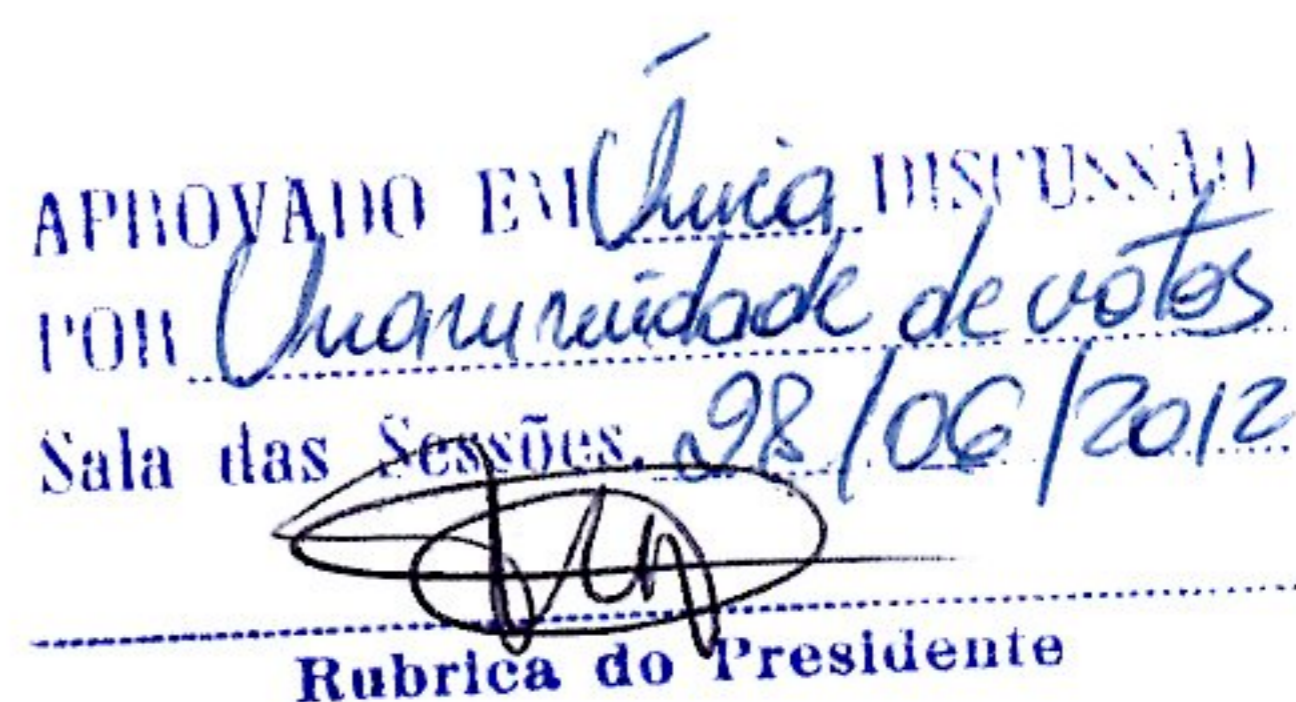 APROVADO EM Única DISCUSSÃO
POR Unanimidade de votos
Sala das Sessões, 28/06/2012
Rubrica do Presidente